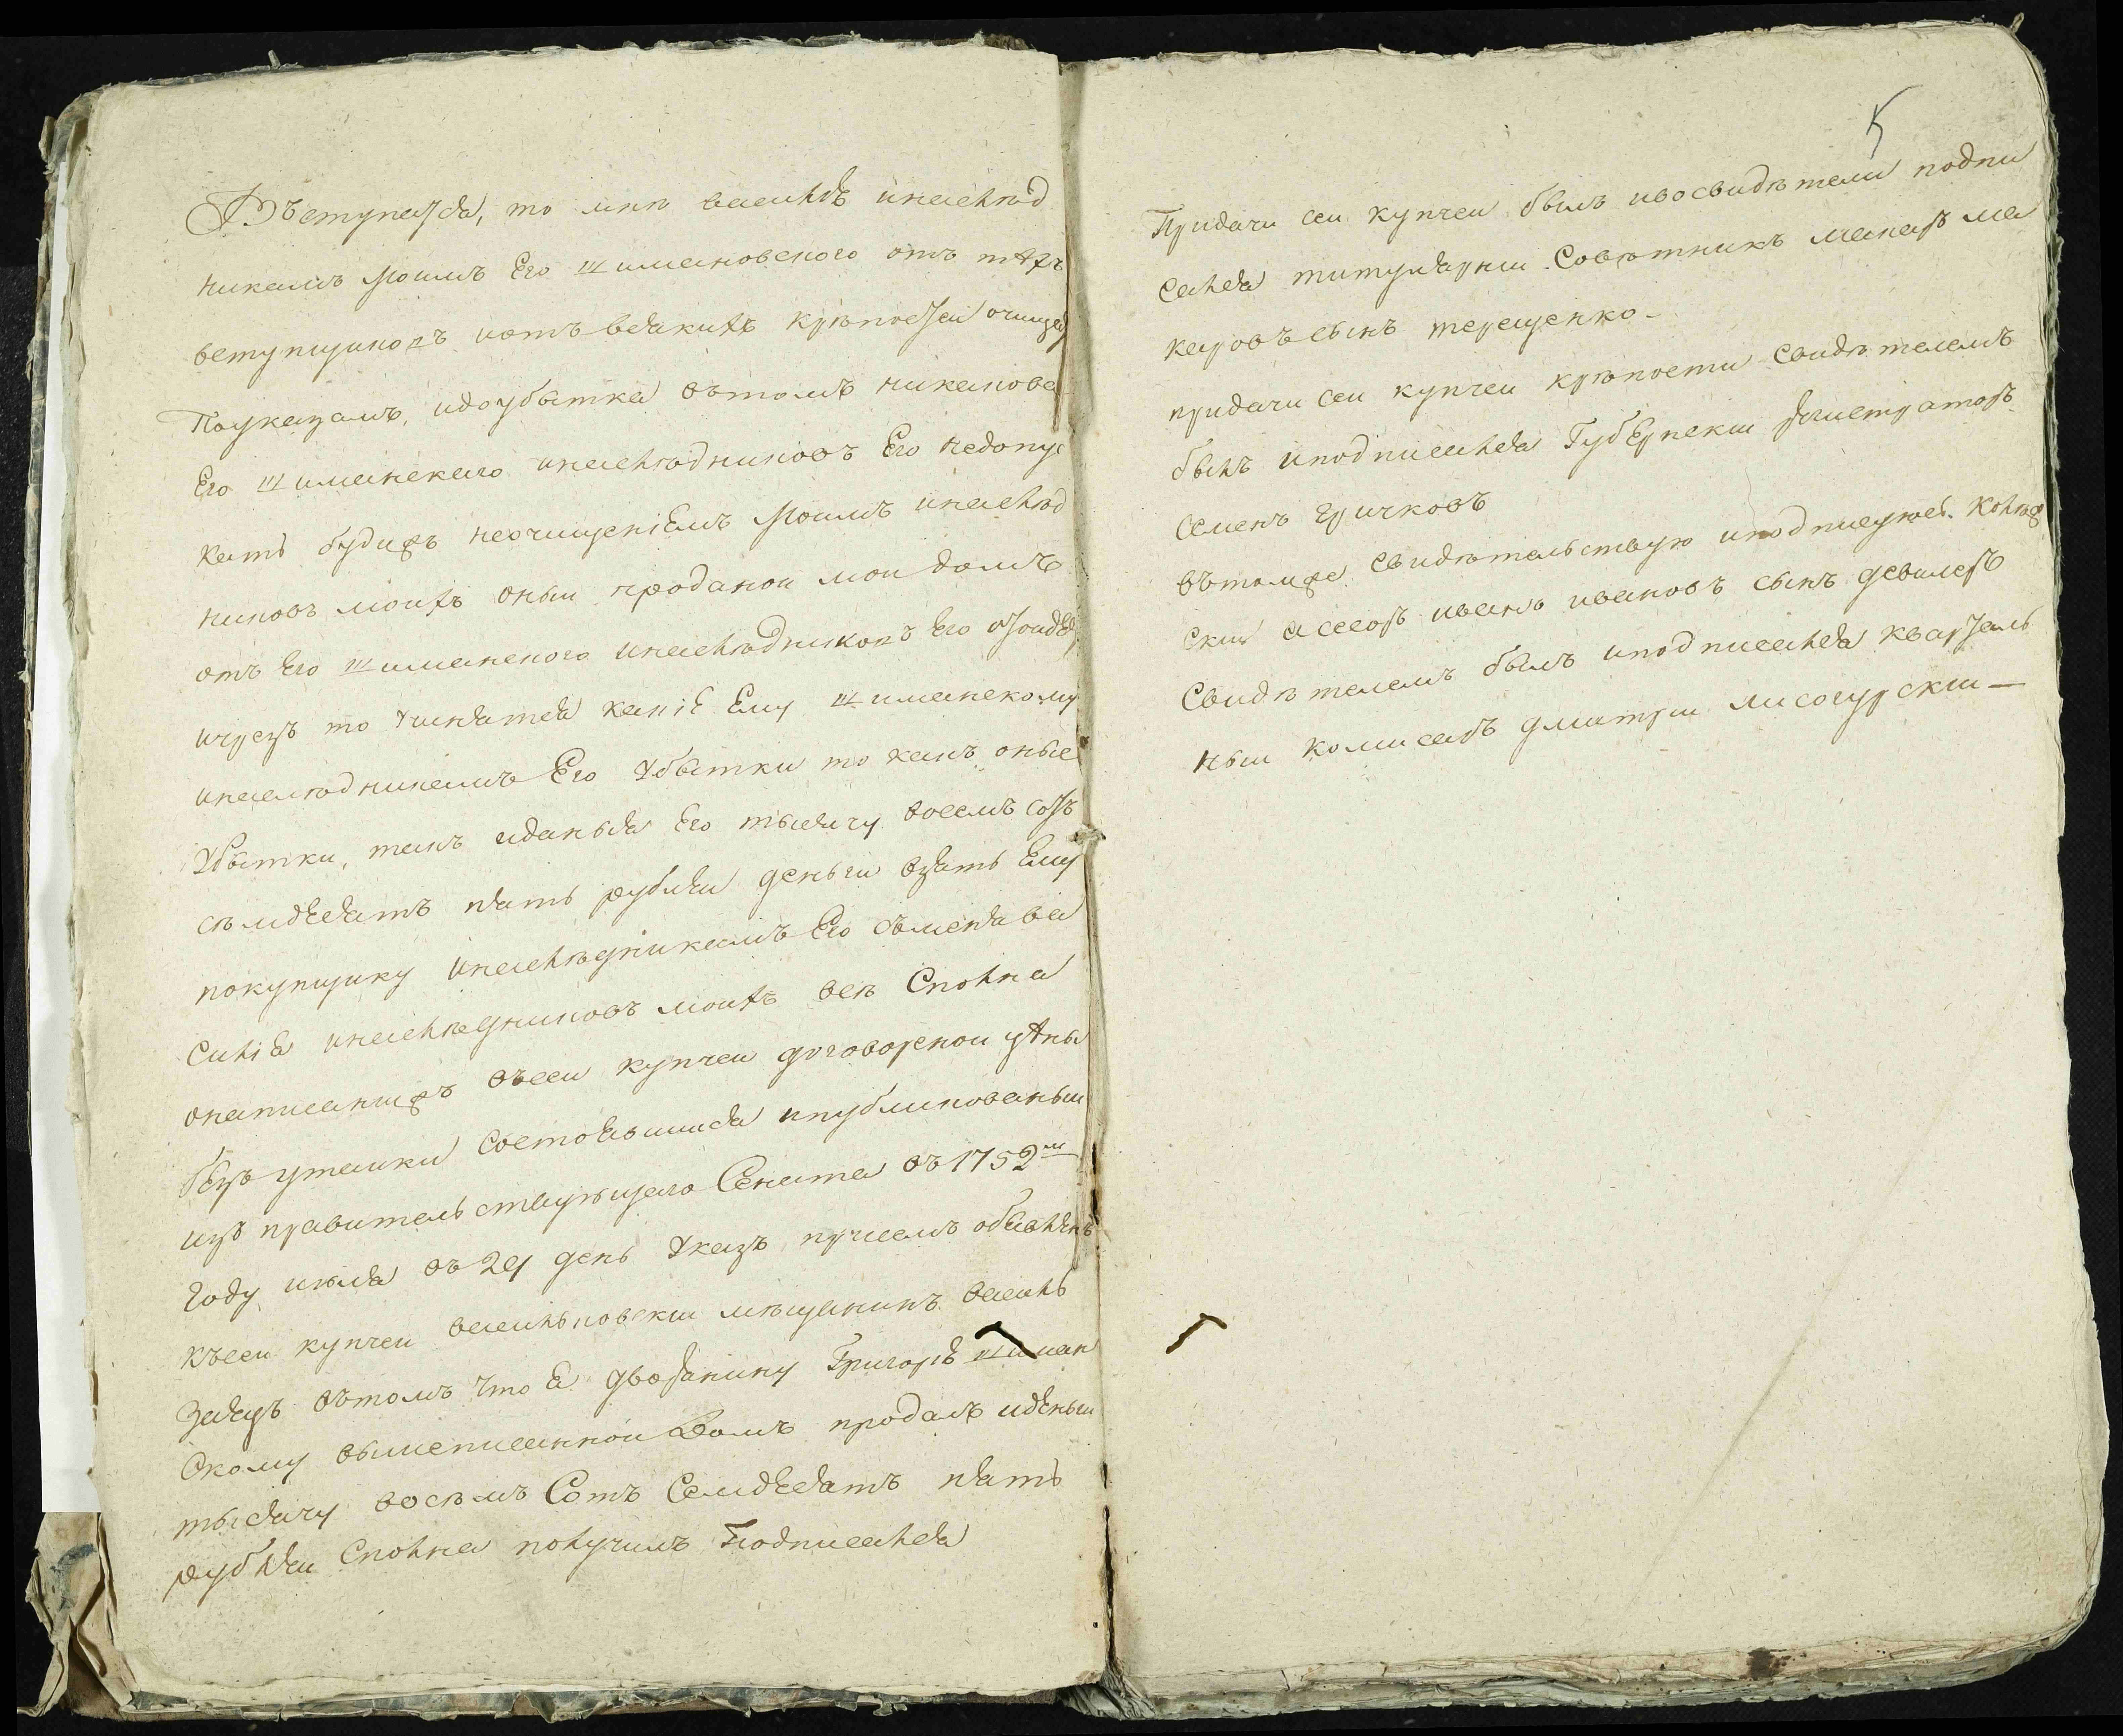 Въступатся, то мне василю инаслѣд
никамъ моимъ Его Шимановского отъ тѣхъ
вступщиковъ иотъ всякихъ крѣпостеи очищат
Поуказамъ, идоубытка вътомъ никакова
Его Шиманскаго инаслѣдниковъ Его недопус
кать будиже неочищениЕмъ моимъ инаслѣд
никовъ моихъ оныи проданои мои домъ
отъ Его Шиманского инаслѣдниковъ Его отоидЕ
ичрезъ то Учинятся какиЕ Ему Шиманскому
инаслѣдникамъ Его Убытки то какъ оные
Убытки, такъ иданыя Его тысячу восемъ сотъ
семдЕсятъ пять рублеи деньги взять Ему
покупщику инаслѣдникамъ Его съменя ва
силія инаслѣдниковъ моихъ всѣ Сполна
онаписаниже всеи купчеи договорнои цѣны
безъ утаики состоявшися ипубликованыи
изъ правительствующаго Сената въ 1752м
Году июля въ 29 день Указъ причемъ обявлЕнъ
Къеси купчеи васильковски мѣщанинъ василь
Заяцъ вътомъ что я дворянину Григорю Шиман
Скому вышеписаннои Домъ продалъ иденьги
тысячу восемъ Сотъ СемдЕсятъ пять
рублеи Сполна получилъ Подписался
5
Придачи сеи купчеи былъ ивосвидѣтели подпи
сался титулярныи Совѣтникъ макаръ ма
каровъ сынъ терещенко -
придачи сеи купчеи крѣпости свидѣтелемъ
былъ иподписался ГубЕрнски регистраторъ
семенъ гричковъ
вътомже свидѣтельствую иподписуюсь колеж
ски асесоръ иванъ ивановъ сынъ девилеръ
Свидѣтелемъ былъ иподписался кварталь
ныи комисаръ дмитри лисогурски —